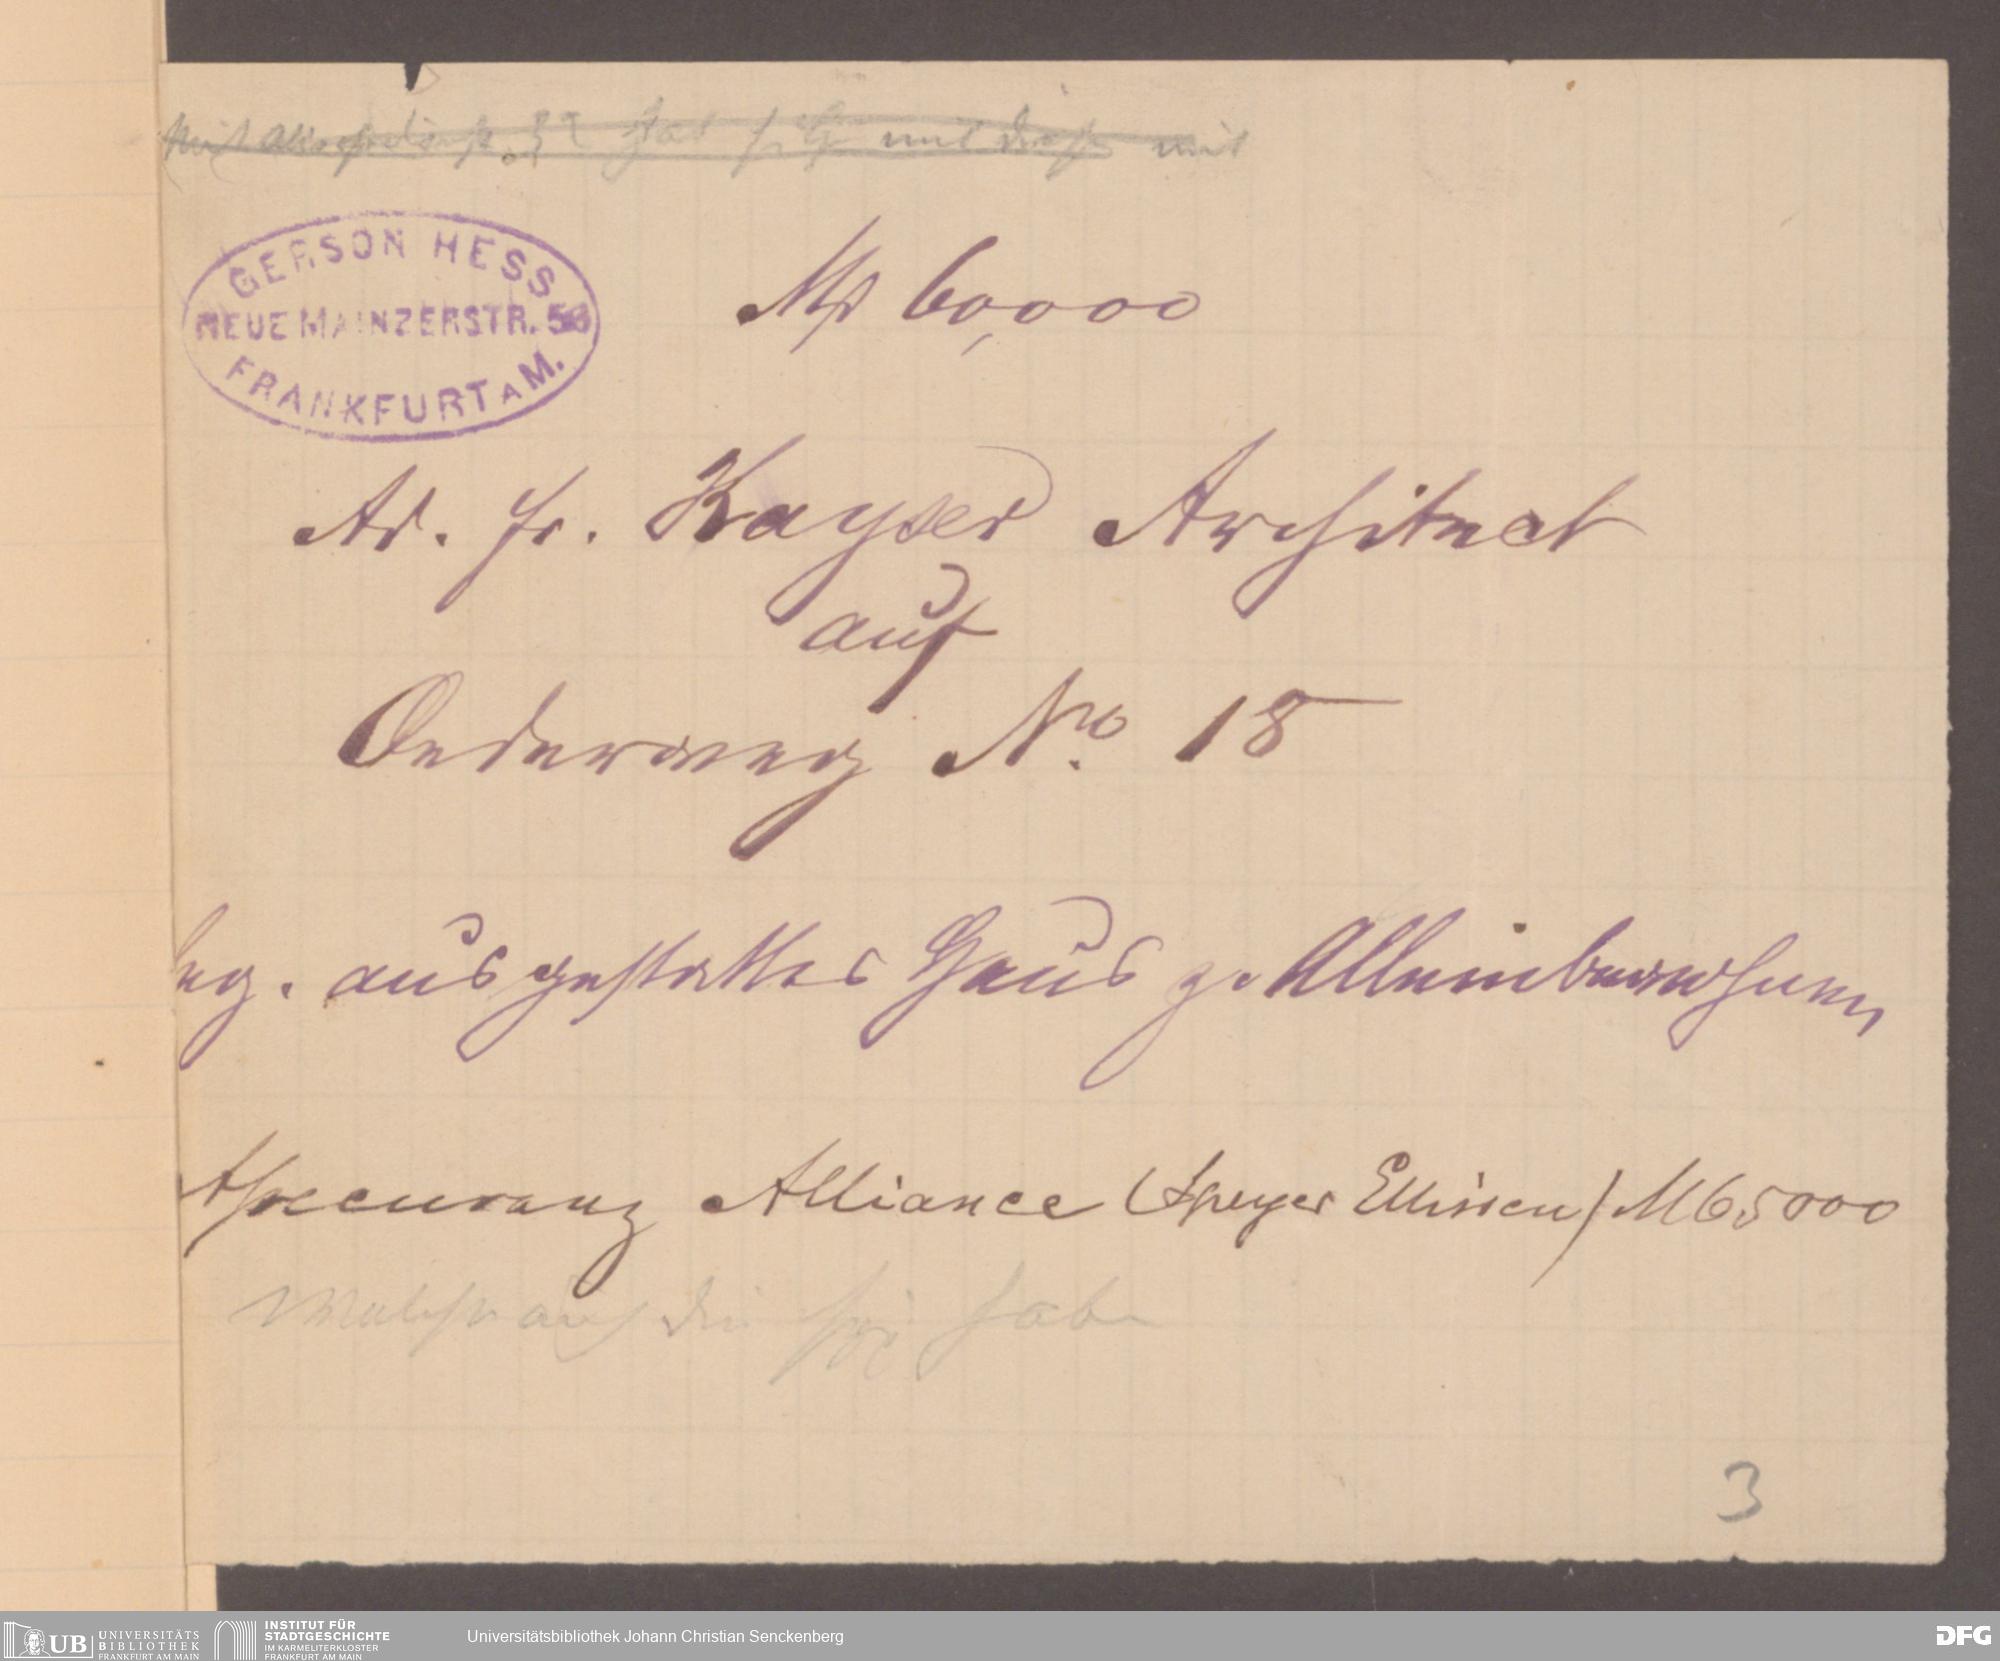 mit
GERSON HESS
NEUE MAINZERSTR. 56
FRANKFURT A M.
Mk 60,000
Ad. Fr. Kayser Architect
auf
Oederweg No. 18
eleg. ausgestattetes Haus z. Alleinbewohnen
Assecuranz Alliance (Speyer Ellissen) M 65000
auf die habe
3
UB UNIVERSITÄTS
BIBLIOTHEK
FRANKFURT AM MAIN
INSTITUT FÜR
STADTGESCHICHTE
IM KARMELITERKLOSTER
FRANKFURT AM MAIN
Universitätsbibliothek Johann Christian Senckenberg
DFG